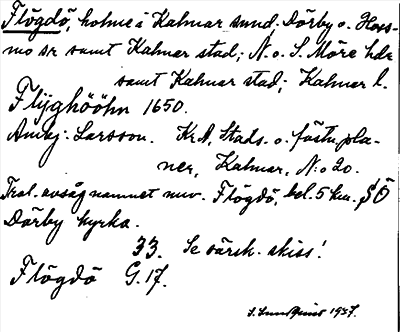 Flögdö, holme i Kalmar sund. Dörby o. Hoss-
mo sr samt Kalmar stad; N. o S. Möre hdr
samt Kalmar stad; Kalmar l.
Flÿghööhn 1650.
Anmj: Larsson. KrA, Stads- o. fästn.pla-
ner, Kalmar, N:o 20.
Trol. avsåg namnet nuv. Flögdö, bel. 5 km. SÖ
Dörby kyrka.
33. Se särsk. skiss!
Flögdö G. 17.
S. Lundquist 1937.